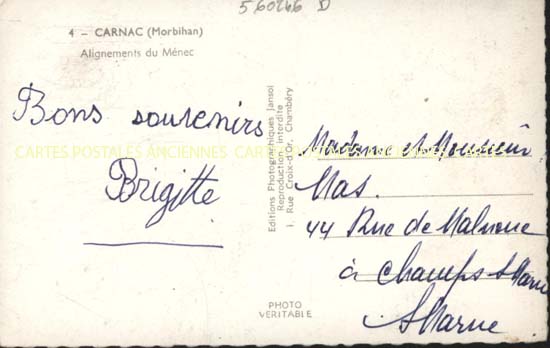 560266 D
4 – CARNAC (Morbihan)
Alignements du Ménec
Bons souvenirs
Brigitte
CARTES POSTALES ANCIENNES CARTES POSTALES ANCIENNES
Editions Photographiques Jansol
Reproduction interdite
1, Rue Croix-d'Or, Chambéry
Madame et Monsieur
Mas.
44 Rue de Malnoue
à Champs s/Marne
S/Marne
PHOTO
VERITABLE